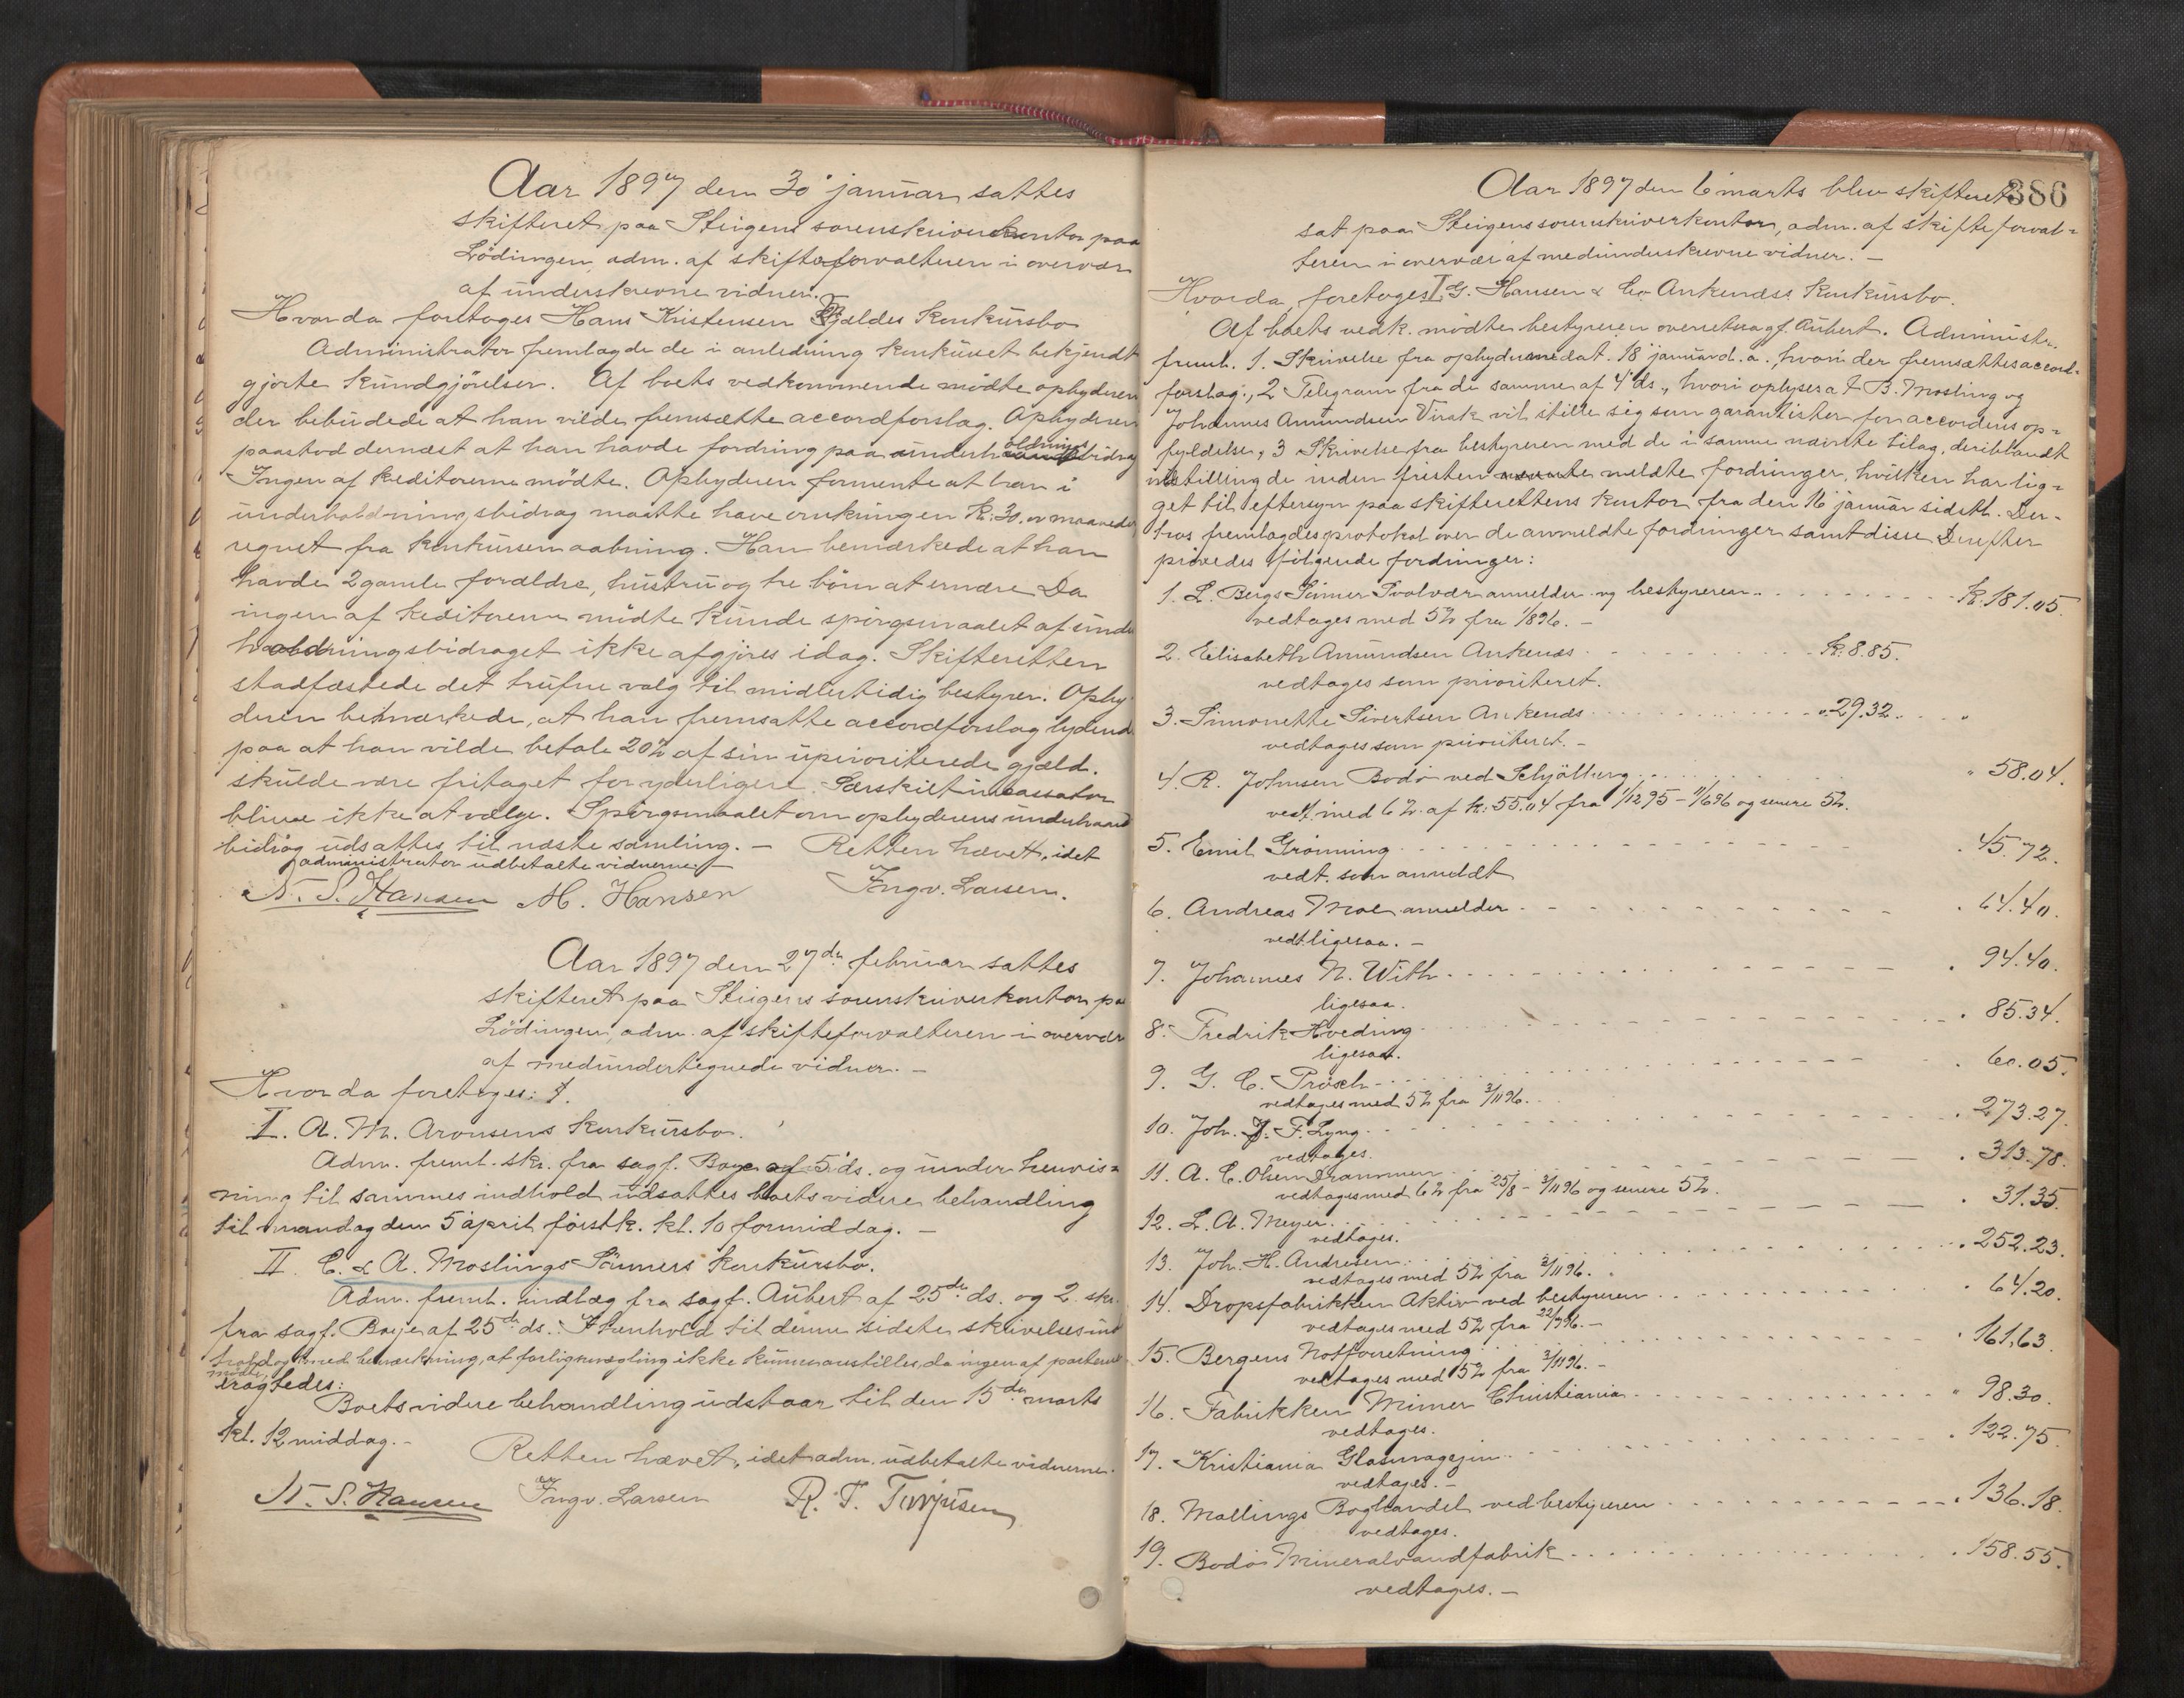 Aar 1897 den 30' januar sattes
skifteret paa Steigens sorenskriverkontor paa
Lödingen, adm. af skifteforvalteren i overvær
af underskrevne vidner.
Hvorda foretoges Hans Kristensen Fjældes konkursbo
Administrator fremlagde de i anledning konkurset bekjendt
gjorte kundgjörelser. Af boets vedkommende mödte opbyderen
der bebudede at han vilde fremsætte accordforslag. Opbyderen
paastod dernæst at han havde fordring paa underholdningsbidrag
Ingen af kreditorerne mödte. Opbyderen formente at han i
underholdningsbidrag maatte have omkring en kr. 30. om maaneden
regnet fra konkursens aabning. Han bemærkede at han
havde 2 gamle forældre, hustru og tre börn at ernære Da
ingen af kreditorerne mödte kunde spörgsmaalet af under
holdningsbidraget ikke afgjöres idag. Skifteretten
stadfæstede det trufne valg til midlertidig bestyrer. Opby
deren bemærkede, at han fremsatte accordforslag lydend
paa at han vilde betale 20% af sin uprioriterede gjæld.
skulde være fritaget for yderligere. Særskilt incassator
bliver ikke at vælge. Spörgsmaalet om opbyderens underhold
bidrag udsattes til næste samling. — Retten hævet, idet
administrator udbetalte vidnerne.
N. S. Hansen M. Hansen Ingv. Larsen.
Aar 1897 den 27de februar sattes
skifteret paa Steigens sorenskriverkontor pa
Lödingen, adm. af skifteforvalteren i overvær
af medundertegnede vidner. —
Hvorda foretoges:
I. A. M. Aronsens konkursbo.
Adm. freml. skr. fra sagf. Boye af 5' ds. og under henvis=
ning til sammes indhold udsattes boets videre behandling
til mandag den 5' april förstk. kl. 10 formiddag. —
II. C. & A. Moslings Sönners konkursbo.
Adm. freml. indlæg fra sagf. Aubert af 25de ds. og 2 skr.
fra sagf. Boye af 25de ds. I henhold til denne sidste skrivelses ind
hold og med bemærkning, at forligsmægling ikke kunne anstilles, da ingen af parterne
mödte,
eragtedes:
Boets videre behandling udstaar til den 15de marts
kl. 12 middag. —
Retten hævet, idet adm. udbetalte vidnerne.
N. S. Hansen Ingv. Larsen R. T. Torjusen
386
Aar 1897 den 6' marts blev skifteret
sat paa Steigens sorenskriverkontor, adm. af skifteforval=
teren i overvær af medunderskrevne vidner. —
Hvorda foretoges I G. Hansen & Co Ankenæss konkursbo.
Af boets vedk. mödte bestyreren overretssagf. Aubert. Administr.
freml. 1. Skrivelse fra opbyderne dat. 18' januar d. a., hvori der fremsættes accord=
forslag., 2 Telegram fra de samme af 4' ds., hvori oplyses at B. Mosling og
Johannes Amundsen Virak vil stille sig som garantister for accordens op=
fyldelse, 3 Skrivelse fra bestyreren med de i samme nævnte bilag, deriblandt
indstilling de inden fristen meldte fordringer, hvilken har lig=
get til eftersyn paa skifterettens kontor fra den 16' januar sidstl. Der=
hos fremlagdes protokol over de anmeldte fordringer samt disse Derefter
prövedes fölgende fordringer:
1. L. Bergs Sönner Svolvær anmelder og bestyreren . . . . kr. 181.05.
vedtages med 5% fra 1/8 96. —
2. Elisabeth Amundsen Ankenæs . . . . kr. 8.85.
vedtages som prioriteret.
3. Simonette Sivertsen Ankenæs . . . . „ 29.32 . . „
vedtages som prioriteret. —
4. R. Johnsen Bodö ved Schjölberg . . . . „ 58.04.
vedt. med 6% af kr. 55.04 fra 1/12 95 – 11/6 96 og senere 5%.
5. Emil Grönning . . . . 45.72.
vedt. som anmeldt
6. Andreas Moe anmelder . . . . 64.40.
vedt. ligesaa. —
7. Johannes N. With . . . . 94.40.
ligesaa.
8. Fredrik Hveding . . . . 85.34.
ligesaa.
9. G. C. Prösch . . . . 60.05.
vedtages med 5% fra 3/11 96.
10. Joh. F. Lyng . . . . 273.27.
vedtages.
11. A. C. Olsen Drammen . . . . 313.78.
vedtages med 6% fra 25/8 – 3/11 96 og senere 5%.
12. L. A. Meyer . . . . 31.35.
vedtages.
13. Joh. H. Andresen . . . . 252.23.
vedtages med 5% fra 3/11 96.
14. Dropsfabrikken Aktiv ved bestyreren . . . . 64.20.
vedtages med 5% fra 22/9 96. —
15. Bergens Notforretning . . . . 161,63.
vedtages med 5% fra 3/11 96. —
16. Fabrikken Mimer Christiania . . . . „ 98.30.
vedtages.
17. Kristiania Glasmagazin . . . . 122.75.
vedtages. —
18. Mallings Boghandel ved bestyreren . . . . 136.18.
vedtages.
19. Bodö Mineralvandfabrik . . . . 158.55.
vedtages. —